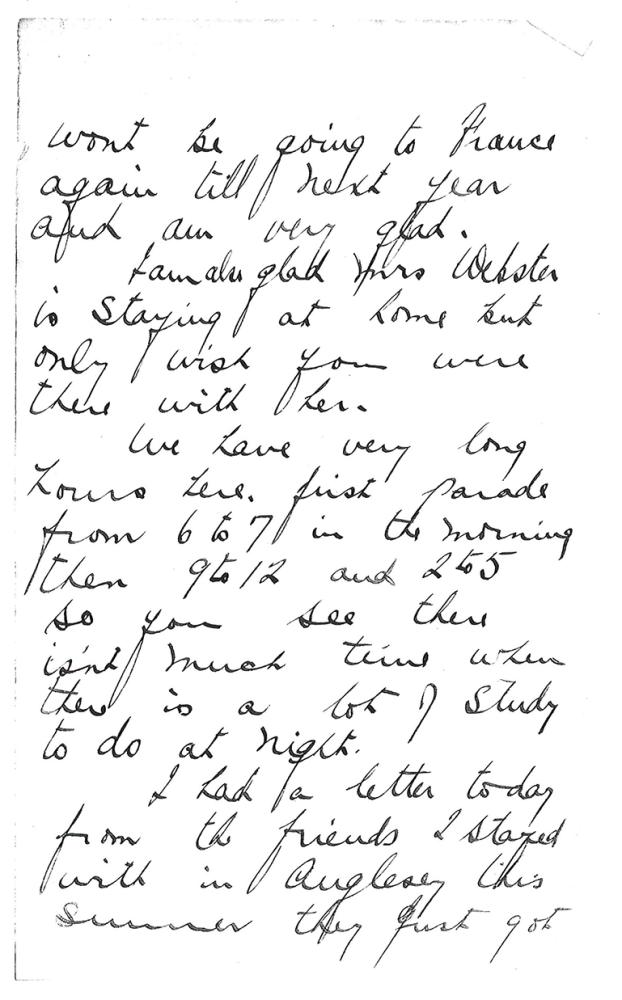 wont be going to France
again till next year
and am very glad.
I am also glad Mrs Webster
is staying at home but
only wish you were
there with her.
We have very long
hours here. first parade
from 6 to 7 in the morning
then 9 to 12 and 2 to 5
so you see there
isn't much time when
there is a lot of study
to do at night.
I had a letter today
from the friends I stayed
with in Anglesey this
summer they just got